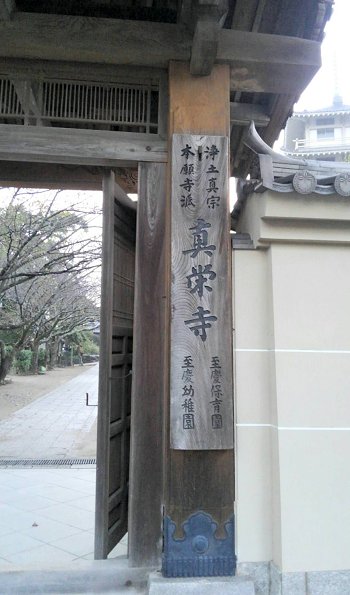 浄土真宗
本願寺派
真栄寺
至慶保育園
至慶幼稚園